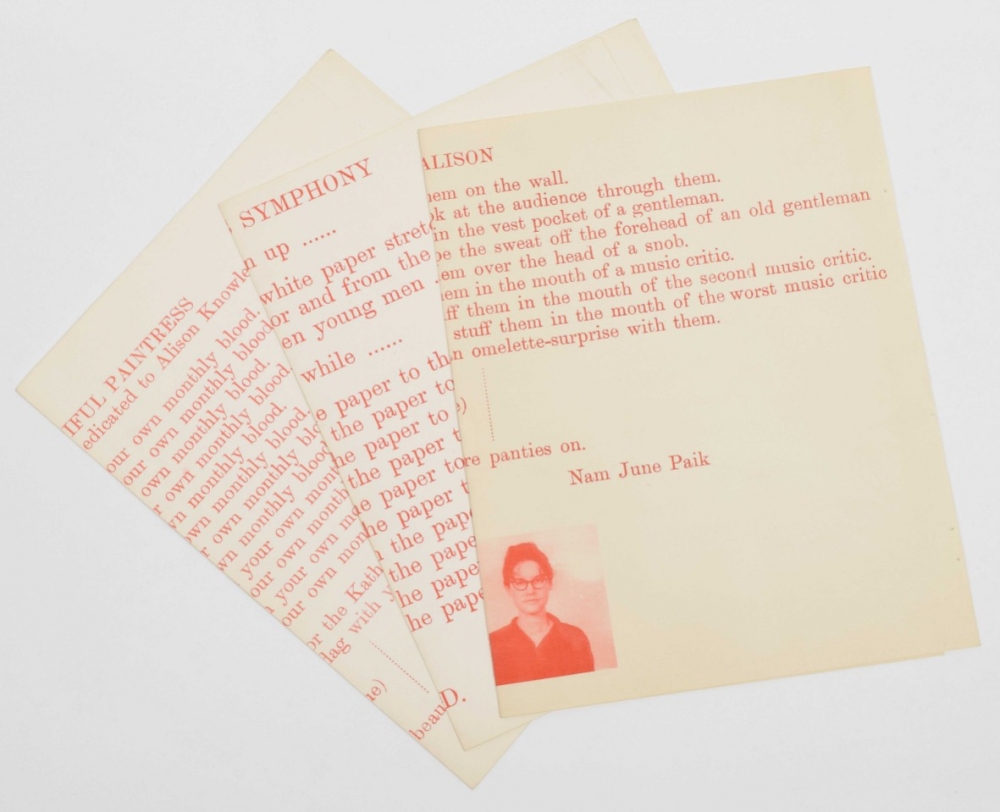 IFUL PAINTRESS
edicated to Alison Knowle
our own monthly blood.
our own monthly blood
own monthly blood.
r own monthly blood.
wn monthly blood.
own monthly bl
r own monthly blood
wn monthly
your own mont
our own month
your own m
our own mon
or the Kath
lag with y
ne)
beau
SYMPHONY
n up ......
white paper stretc
or and from the
en young men
while ......
e paper to th
the paper to
he paper to
the paper t
e paper to
he paper t
the pape
the pape
he pape
he pape
D.
ALISON
hem on the wall.
ok at the audience through them.
in the vest pocket of a gentleman.
pe the sweat off the forehead of an old gentleman
em over the head of a snob.
em in the mouth of a music critic.
ff them in the mouth of the second music critic.
stuff them in the mouth of the worst music critic
n omelette-surprise with them.
e)
re panties on.
Nam June Paik